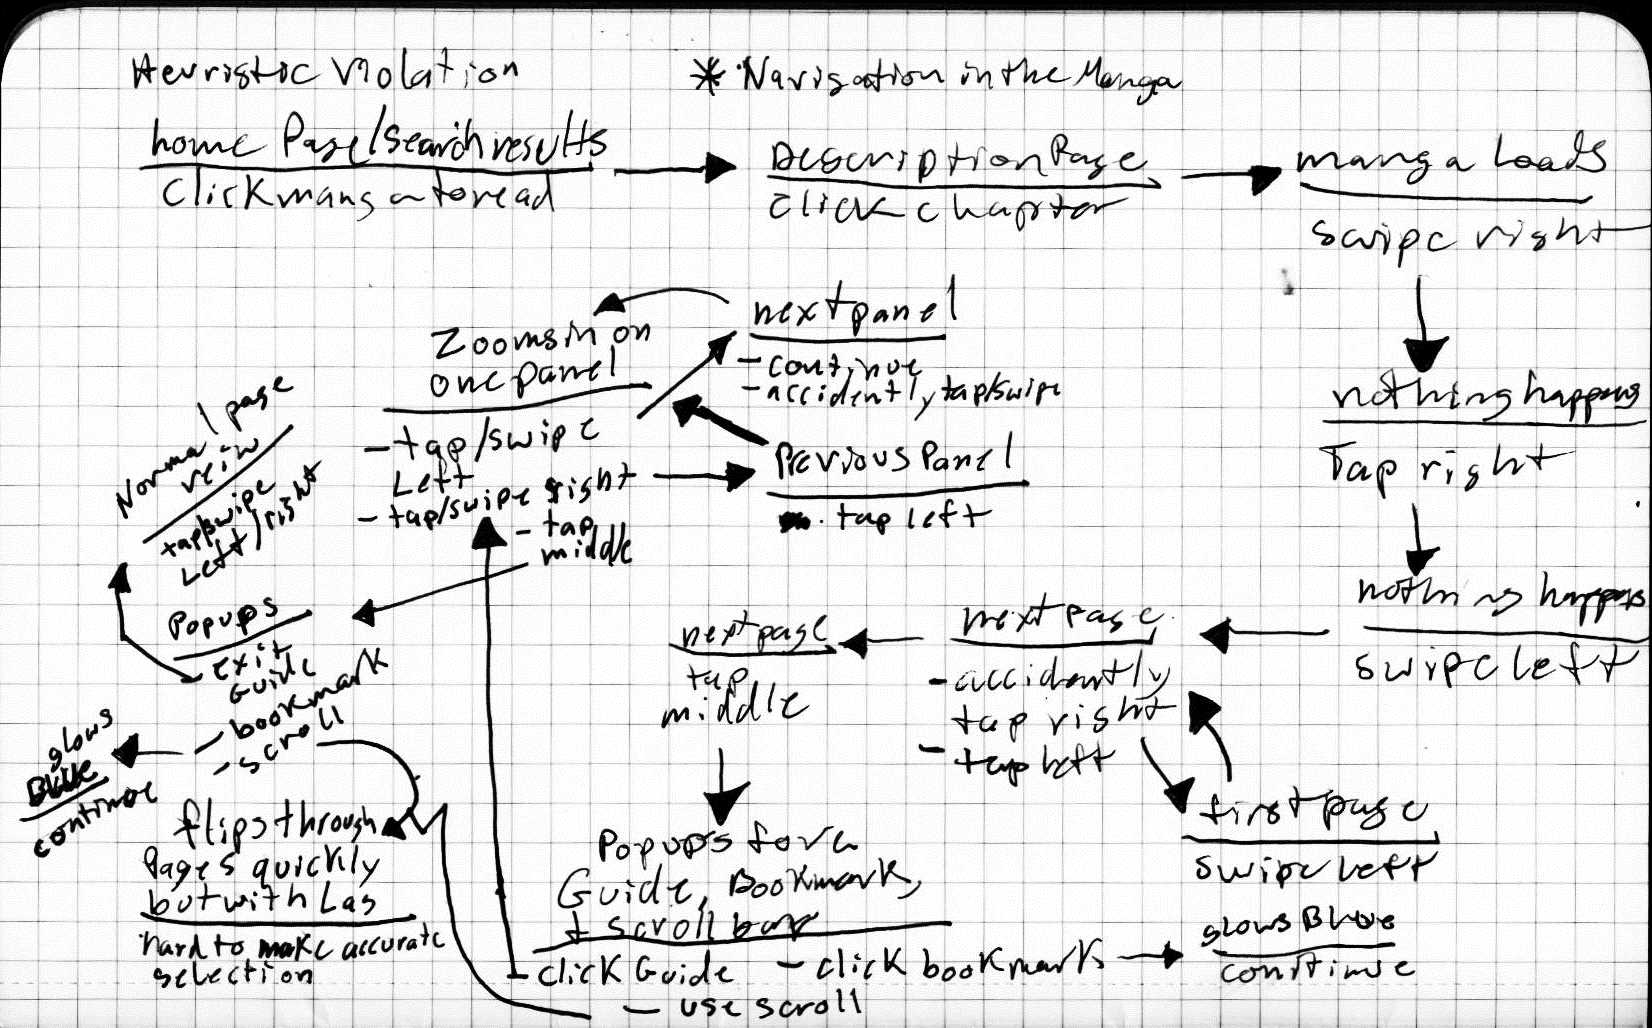 Heuristic Violation
* Navigation in the Manga
home Page/Search results
Click manga to read
Description Page
click chapter
manga loads
swipe right
nothing happens
Tap right
nothing happens
swipe left
next page
- accidently
tap right
- tap left
first page
swipe left
next page
tap
middle
Popups for a
Guide, Bookmark,
+ scroll bar
- click Guide - click bookmarks
- use scroll
glows Blue
continue
Zooms in on
one panel
- tap/swipe
Left
- tap/swipe right
- tap
middle
next panel
- continue
- accidently tap/swipe
Previous Panel
. tap left
Popups
- exit
Guide
- bookmark
- scroll
Normal page
veiw
tap/swipe
Left/right
glows
Blue
continue
flips through
Pages quickly
but with Lag
hard to make accurate
selection